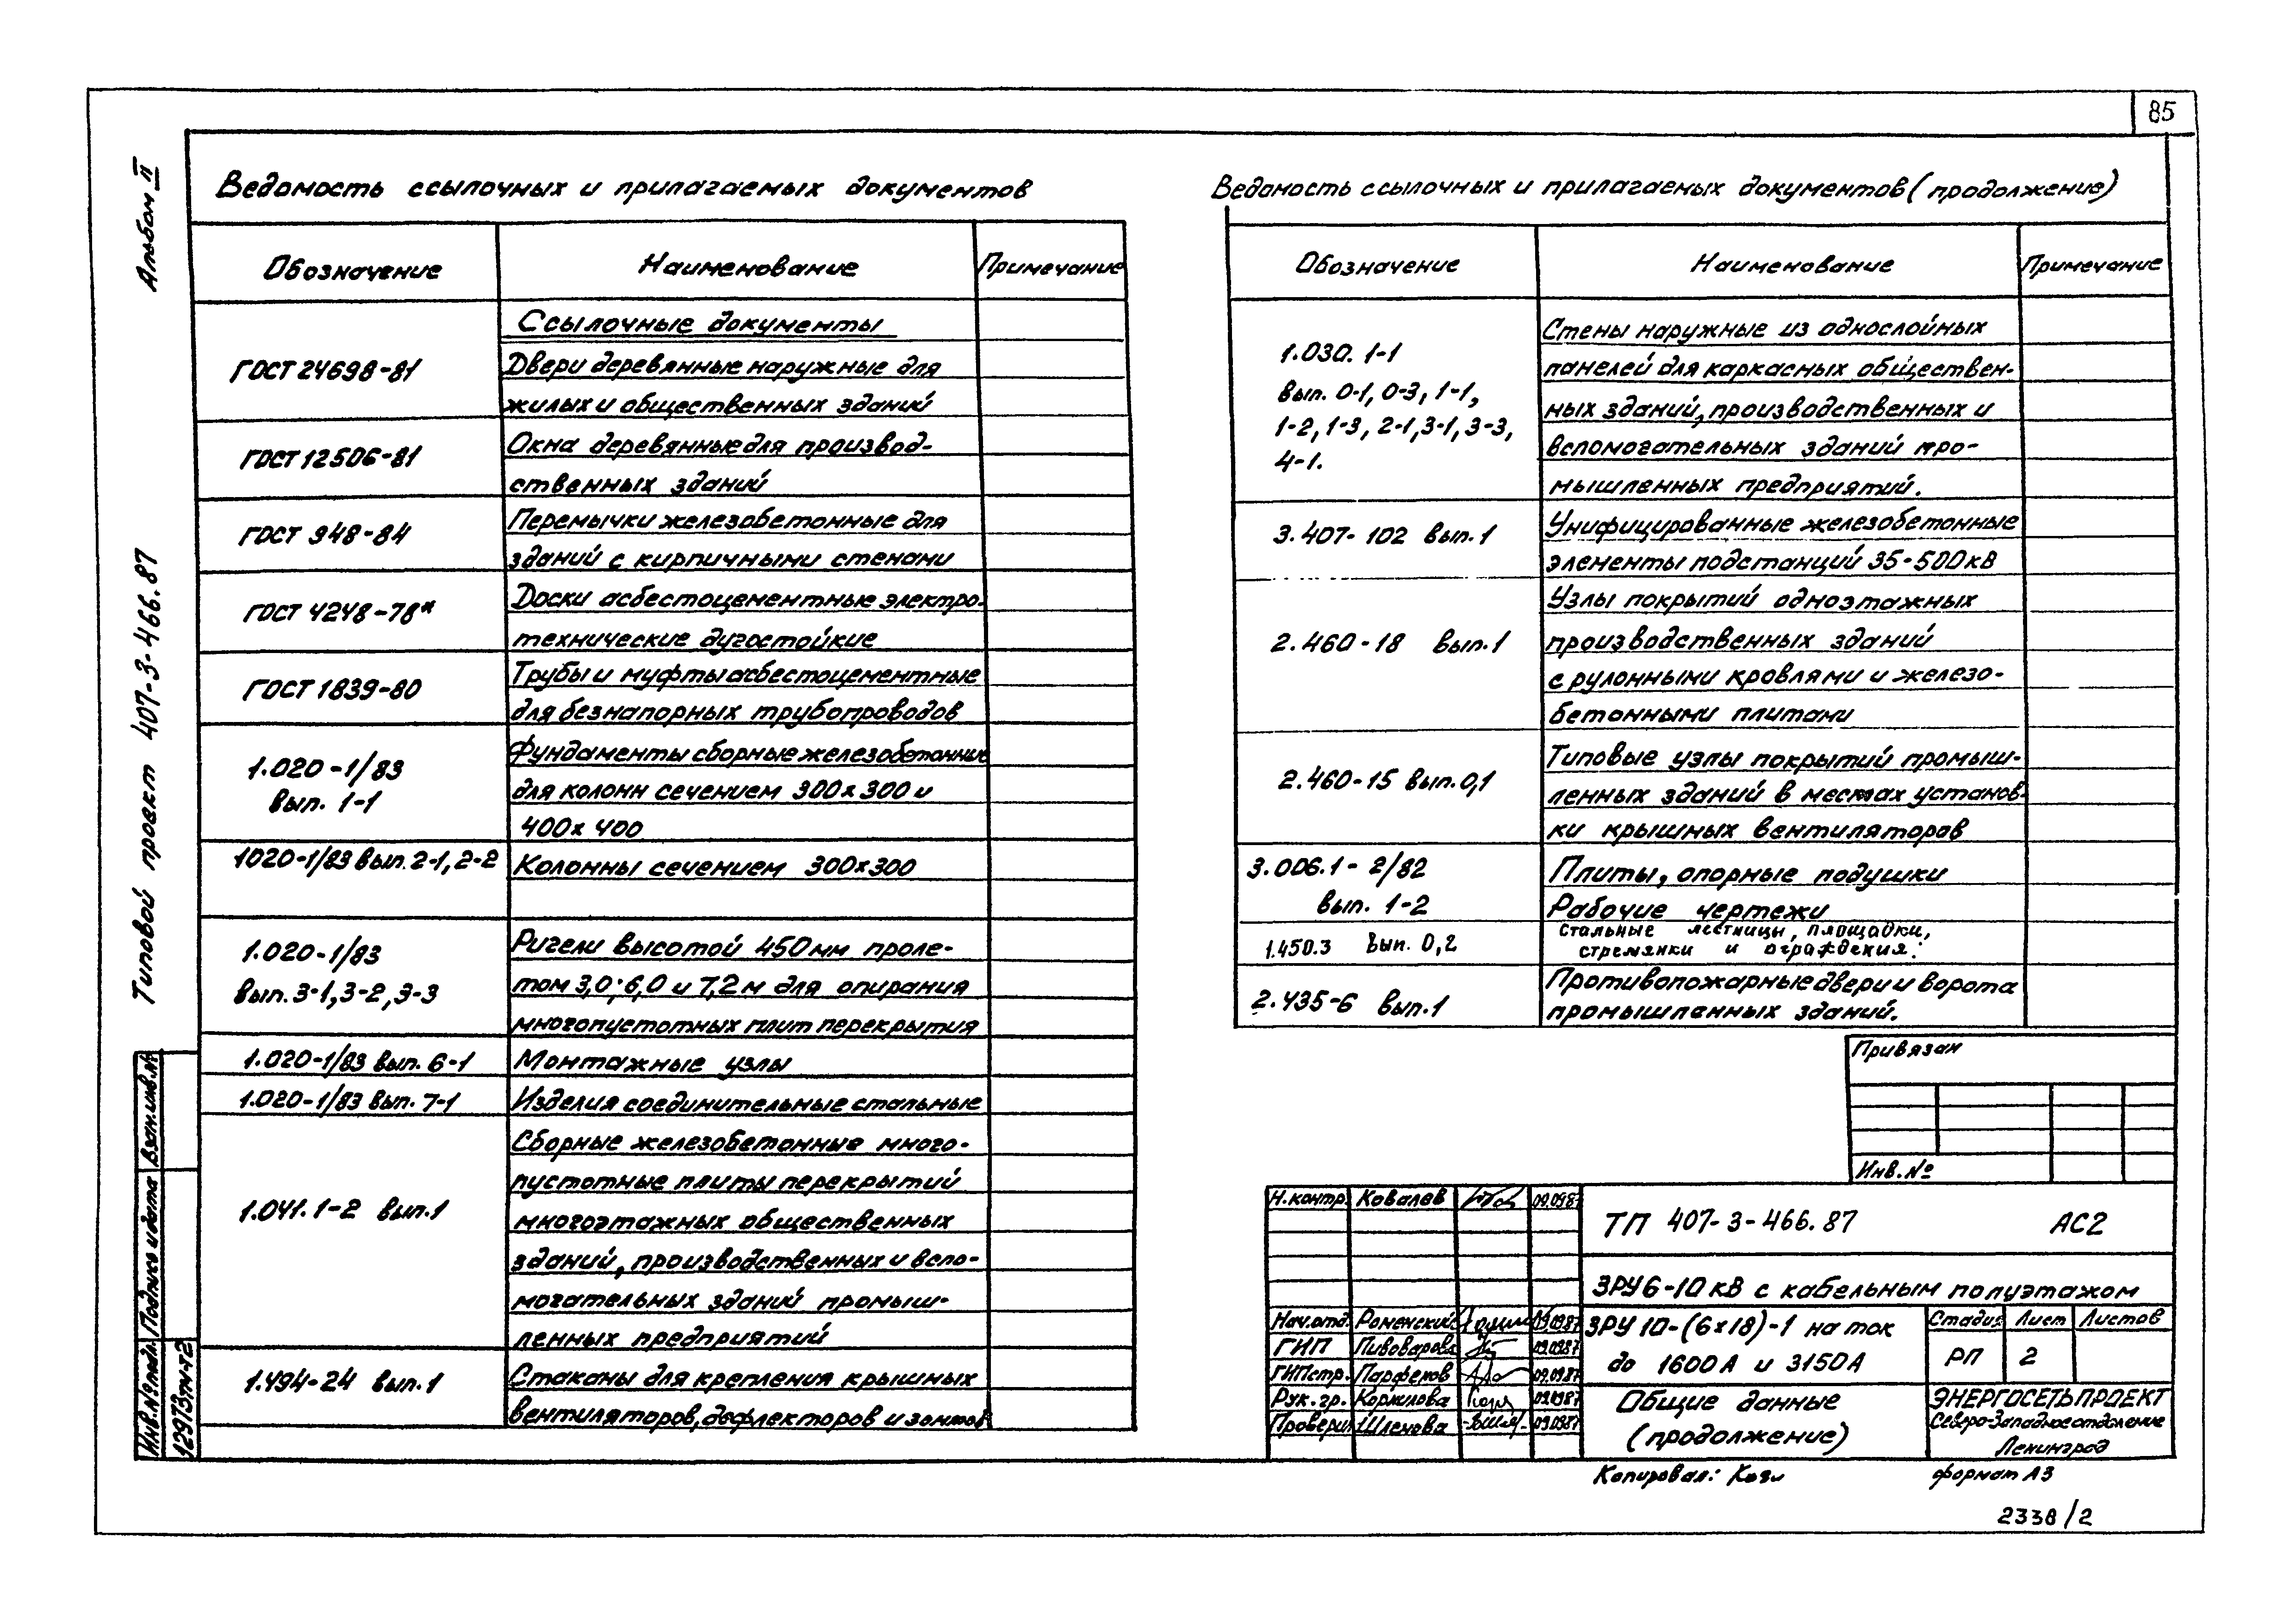 85
Альбом II
Типовой проект 407-3-466.87
Ведомость ссылочных и прилагаемых документов
Обозначение Наименование Примечание
Ссылочные документы
ГОСТ 24698-81 Двери деревянные наружные для
жилых и общественных зданий
ГОСТ 12506-81 Окна деревянные для производ-
ственных зданий
ГОСТ 948-84 Перемычки железобетонные для
зданий с кирпичными стенами
ГОСТ 4248-78* Доски асбестоцементные электро-
технические дугостойкие
ГОСТ 1839-80 Трубы и муфты асбестоцементные
для безнапорных трубопроводов
1.020-1/83 Фундаменты сборные железобетонные
вып. 1-1 для колонн сечением 300х300 и
400х400
1020-1/83 вып. 2-1, 2-2 Колонны сечением 300х300
1.020-1/83 Ригели высотой 450мм проле-
вып. 3-1, 3-2, 3-3 том 3,0; 6,0 и 7,2 м для опирания
многопустотных плит перекрытия
1.020-1/83 вып. 6-1 Монтажные узлы
1.020-1/83 вып. 7-1 Изделия соединительные стальные
Сборные железобетонные много-
пустотные плиты перекрытий
1.041.1-2 вып.1 многоэтажных общественных
зданий, производственных и вспо-
могательных зданий промыш-
ленных предприятий
1.494-24 вып.1 Стаканы для крепления крышных
вентиляторов, дефлекторов и зонтов
Ведомость ссылочных и прилагаемых документов (продолжение)
Обозначение Наименование Примечание
1.030.1-1 Стены наружные из однослойных
вып. 0-1, 0-3, 1-1, панелей для каркасных обществен-
1-2, 1-3, 2-1, 3-1, 3-3, ных зданий, производственных и
4-1. вспомогательных зданий про-
мышленных предприятий.
3.407-102 вып.1 Унифицированные железобетонные
элементы подстанций 35-500кВ
2.460-18 вып.1 Узлы покрытий одноэтажных
производственных зданий
с рулонными кровлями и железо-
бетонными плитами
2.460-15 вып.0,1 Типовые узлы покрытий промыш-
ленных зданий в местах установ-
ки крышных вентиляторов
3.006.1-2/82 Плиты, опорные подушки
вып. 1-2 Рабочие чертежи
1.450.3 вып. 0,2 Стальные лестницы, площадки,
стремянки и ограждения.
2.435-6 вып.1 Противопожарные двери и ворота
промышленных зданий.
Привязан
Инв.№
Н.контр. Ковалев 09.0987
Нач.отд. Роменский 09.0987
ГИП Пивоварова 09.0987
ГИПстр. Парфенов 09.0987
Рук.гр. Корнилова 09.0987
Проверил Шленова 09.0987
ТП 407-3-466.87 АС2
ЗРУ 6-10 кВ с кабельным полуэтажом
ЗРУ 10-(6х18)-1 на ток
до 1600А и 3150А
Стадия Лист Листов
РП 2
Общие данные
(продолжение)
ЭНЕРГОСЕТЬПРОЕКТ
Северо-Западное отделение
Ленинград
Копировал:
формат А3
2338/2
Взам.инв.№
Подпись и дата
Инв.№подл.
12973тм-т2